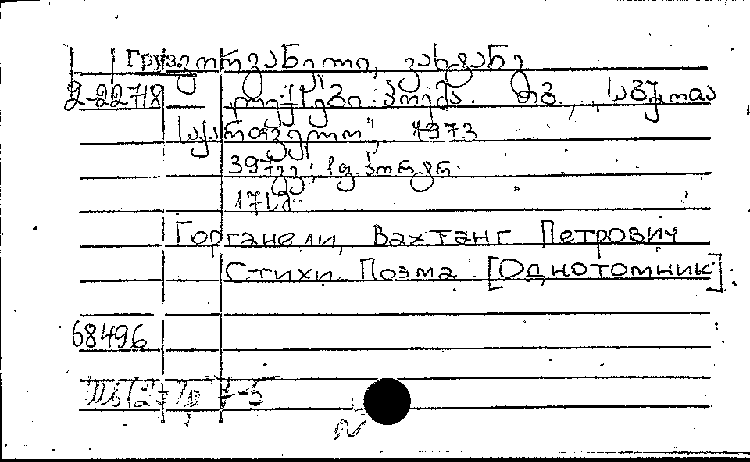 Груз გორგანელი, ვახტანგ
2-22718 ლექსები. პოემა. თბ., „საბჭოთა
საქართველო", 1973
397 გვ; 1 ფ. პორტრ.
Горганели, Вахтанг Петрович
Стихи. Поэма. [Однотомник].
68496